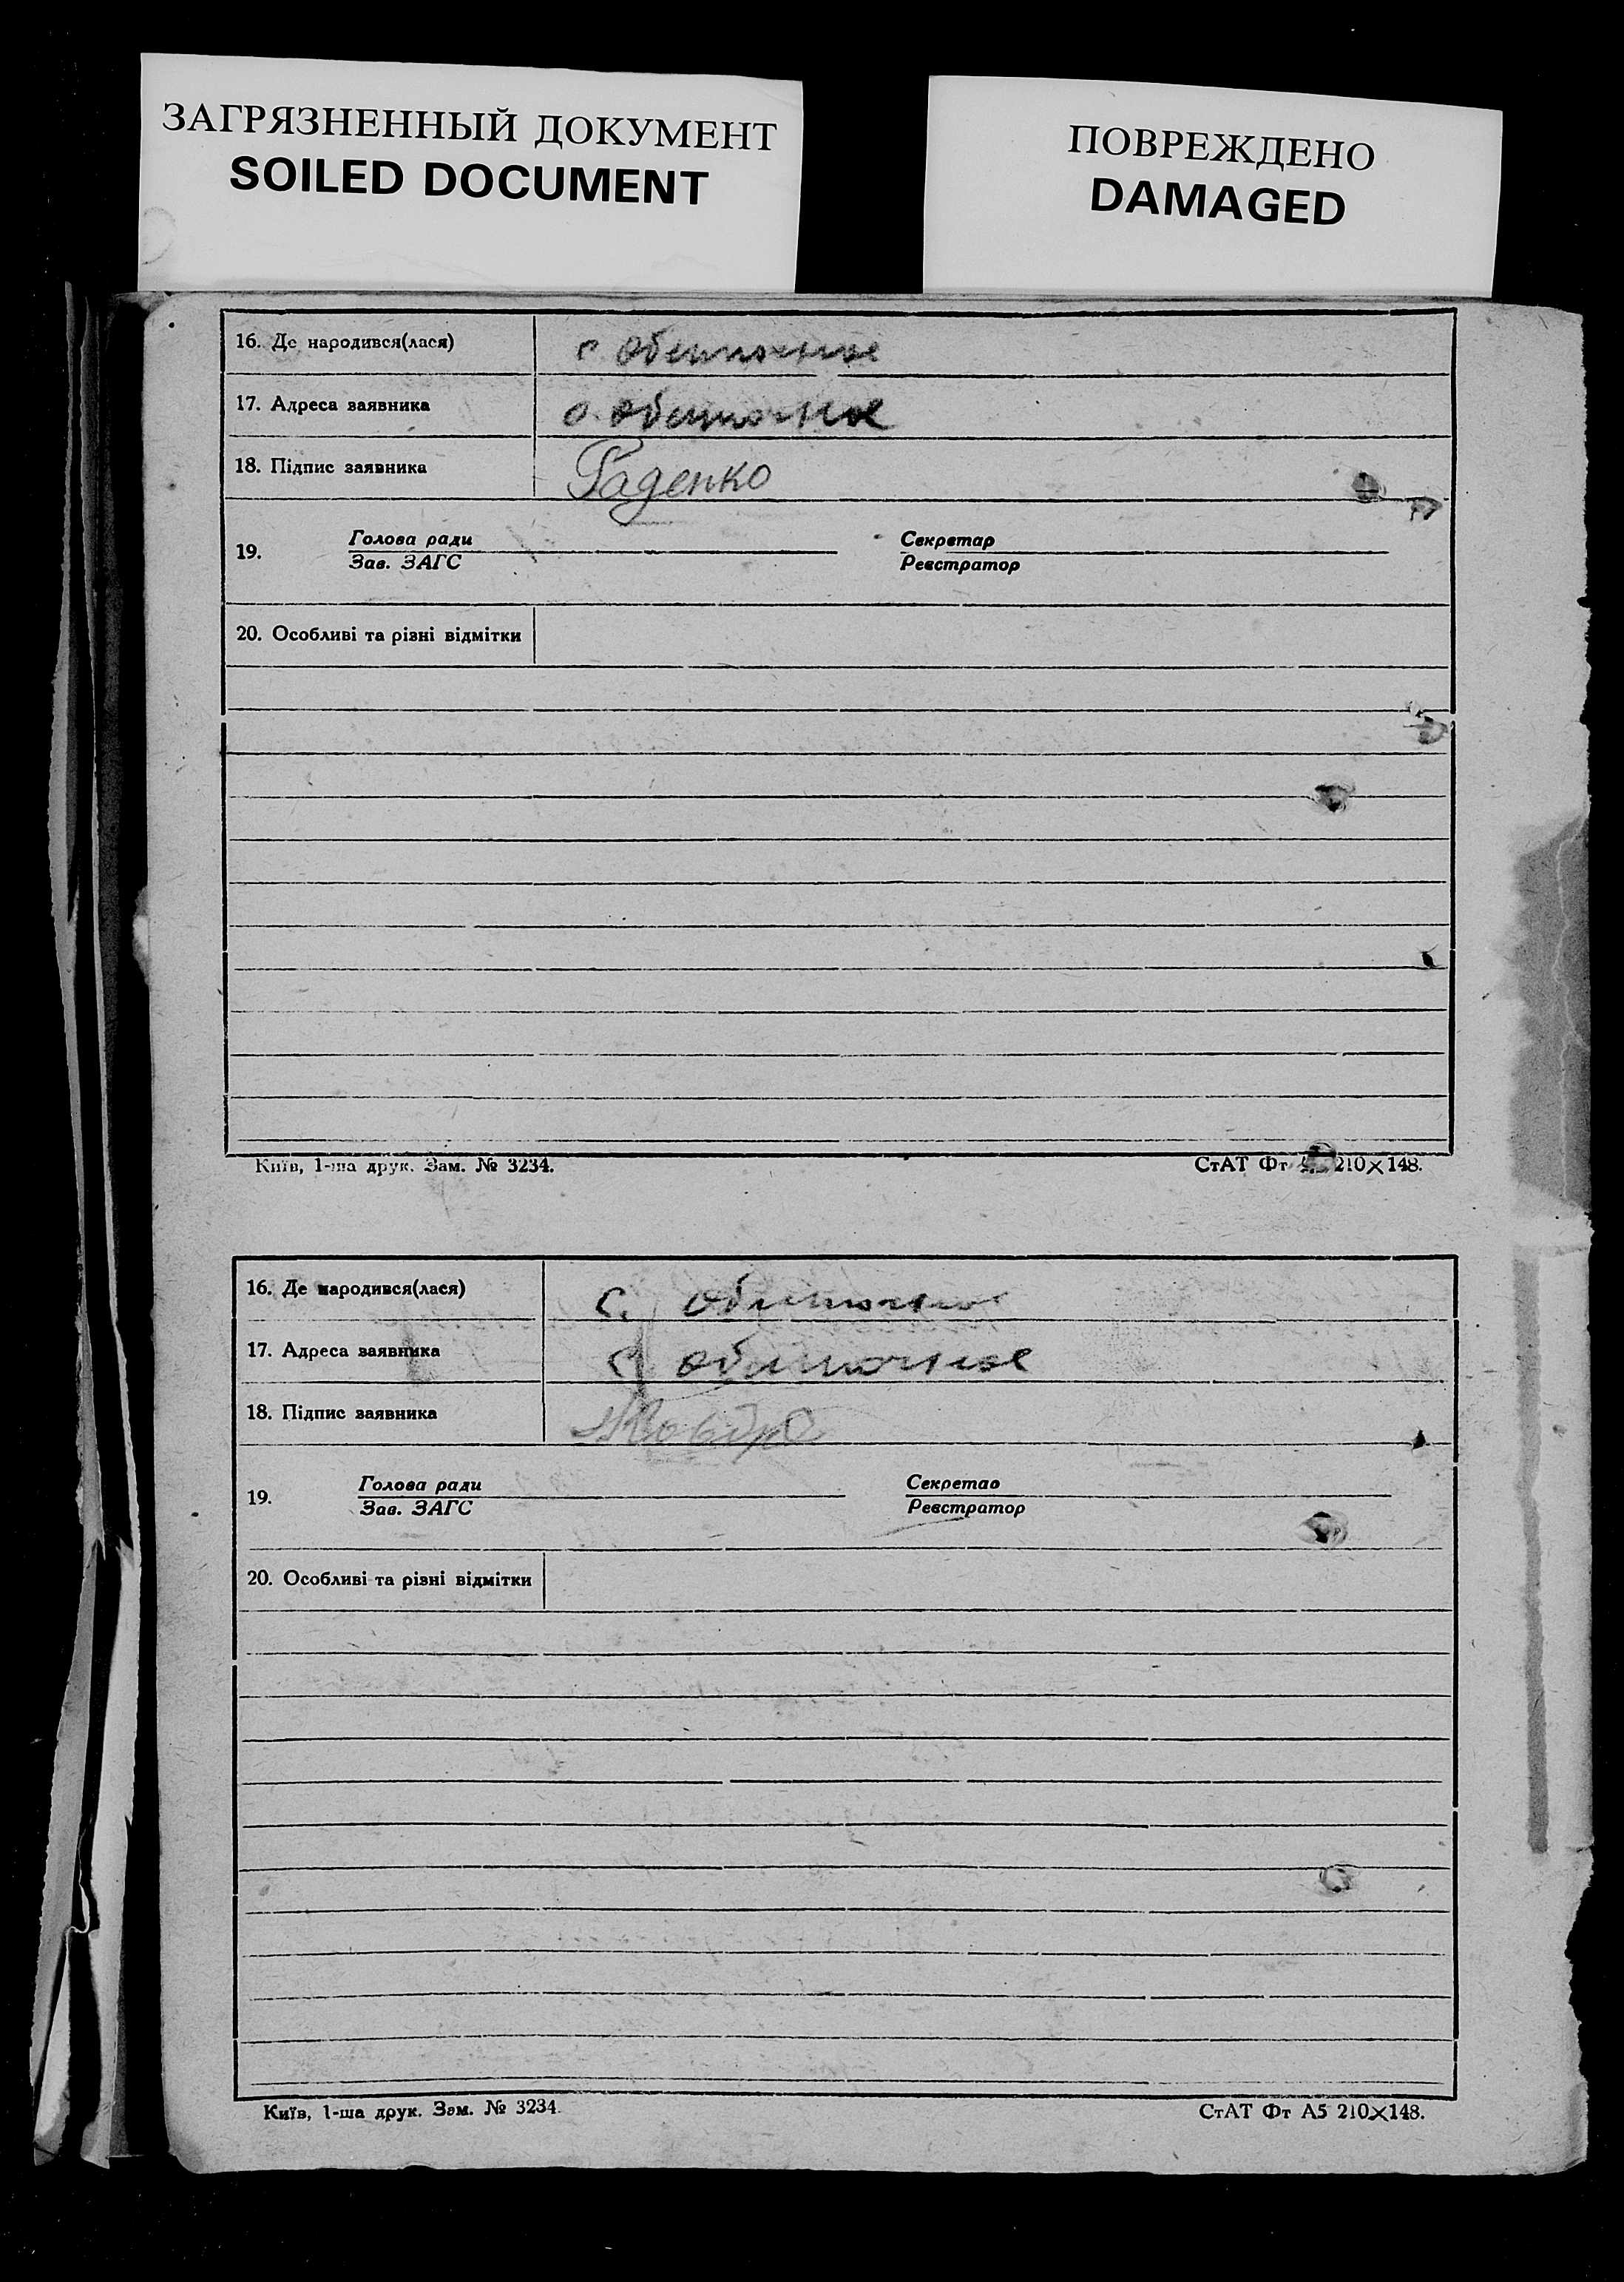 ЗАГРЯЗНЕННЫЙ ДОКУМЕНТ
SOILED DOCUMENT
ПОВРЕЖДЕНО
DAMAGED
16. Де народився(лася) с Обиточное
17. Адреса заявника с. Обиточное
18. Підпис заявника Гаденко
19. Голова ради Секретар
Зав. ЗАГС Реєстратор
20. Особливі та різні відмітки
Київ, 1-ша друк. Зам. № 3234. СтАТ Фт 210×148.
16. Де народився(лася) с. Обиточное
17. Адреса заявника с. Обиточное
18. Підпис заявника
19. Голова ради Секретар
Зав. ЗАГС Реєстратор
20. Особливі та різні відмітки
Київ, 1-ша друк. Зам. № 3234. СтАТ Фт А5 210×148.